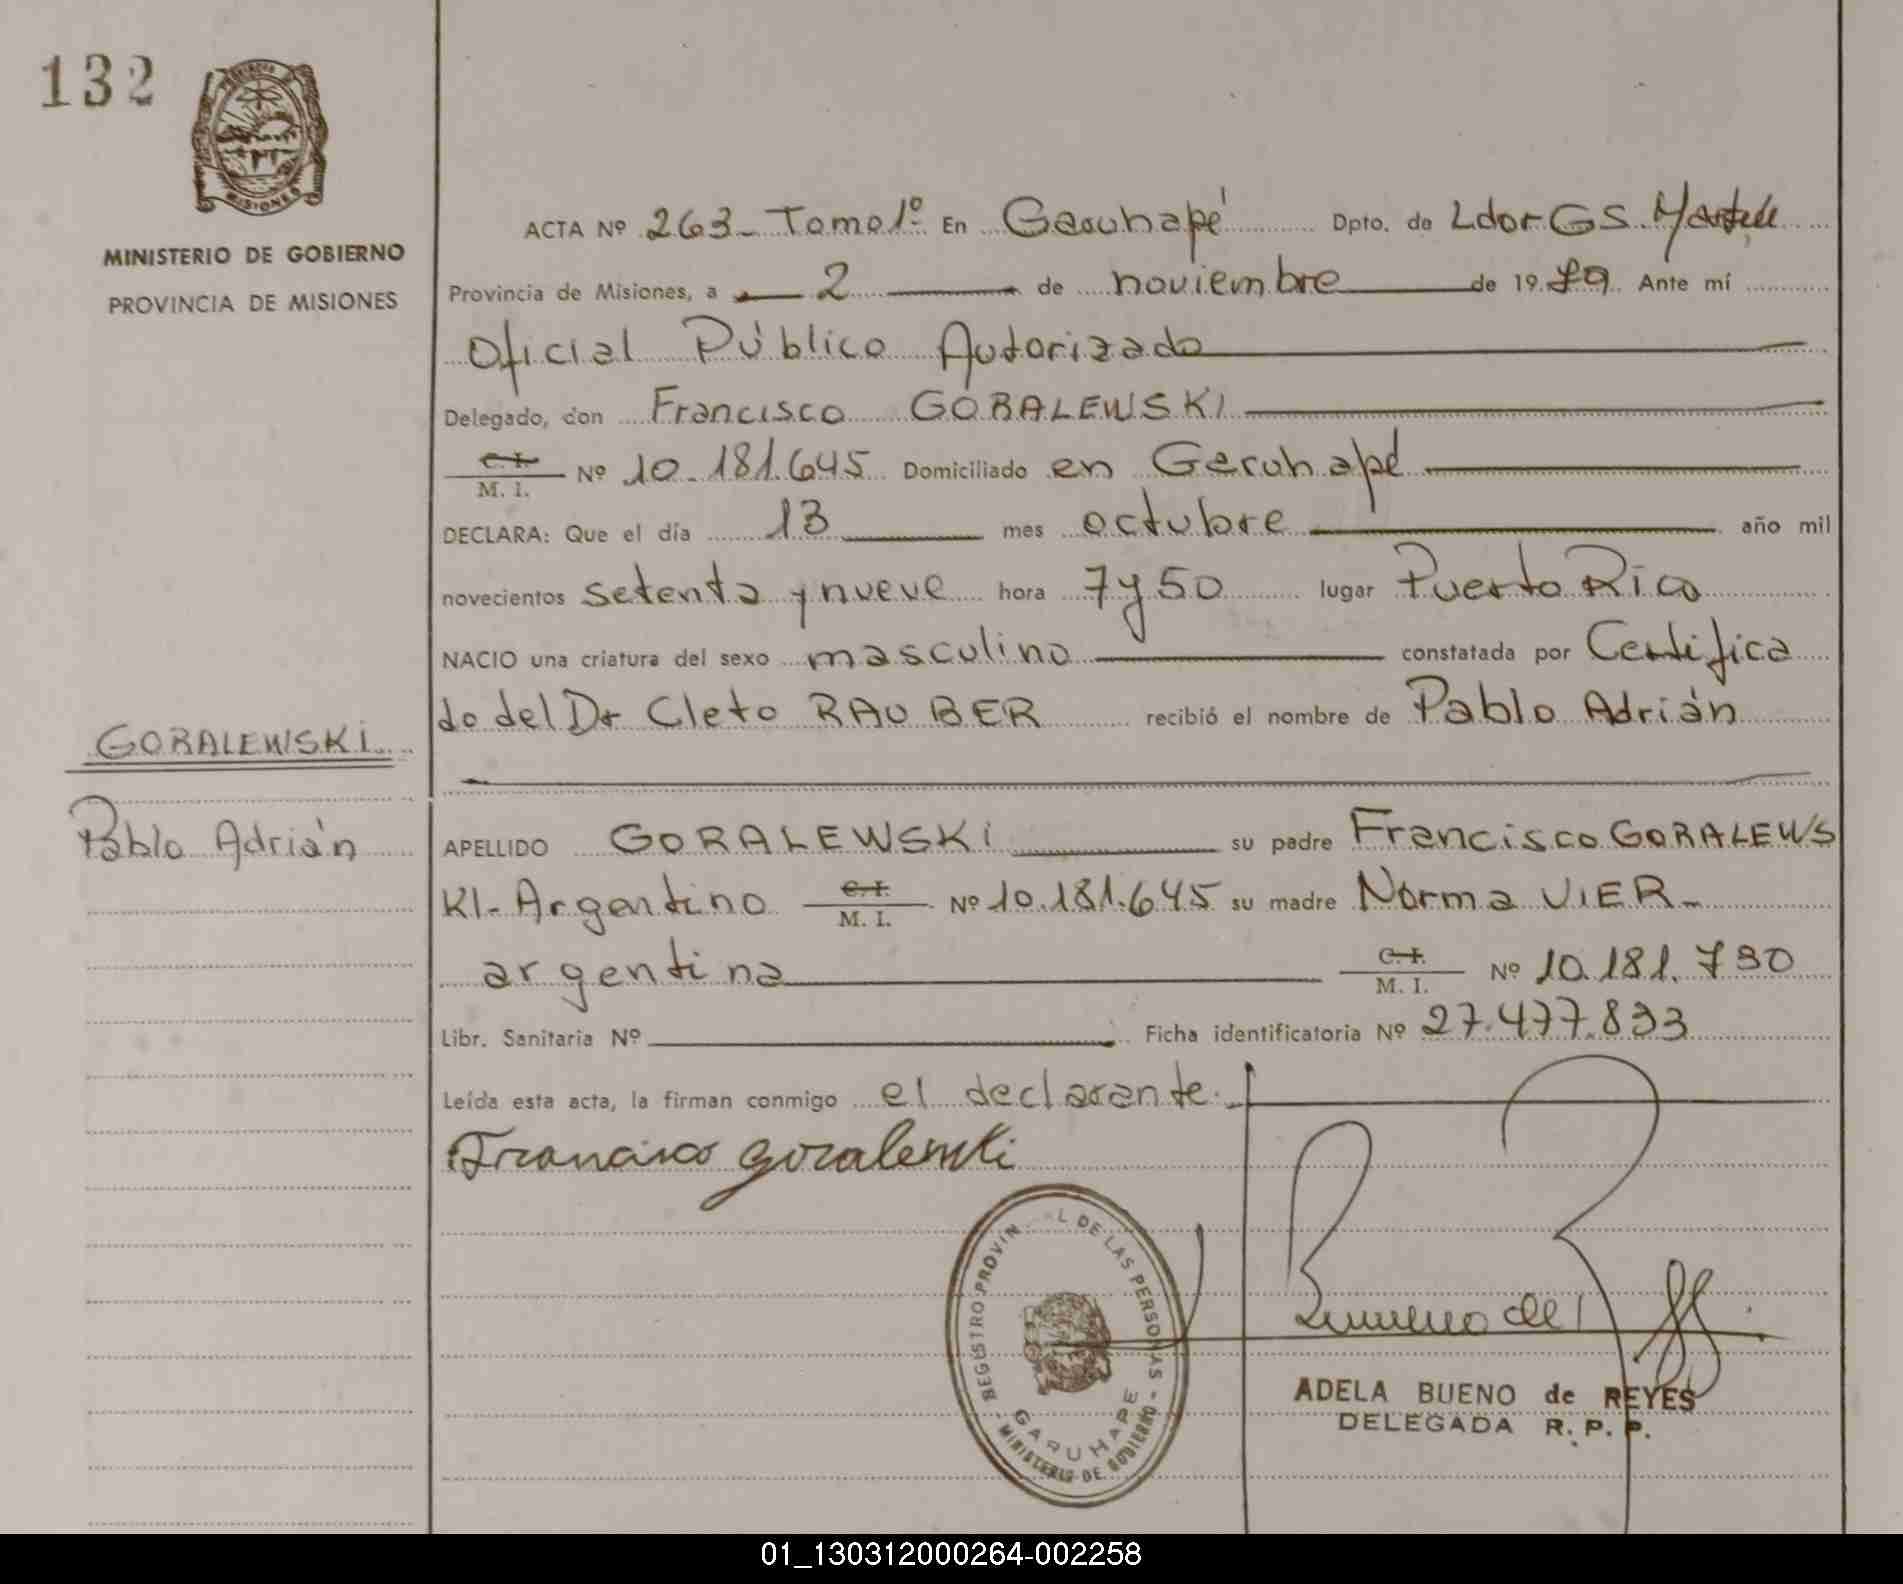 132
PROVINCIA DE
MISIONES
MINISTERIO DE GOBIERNO
PROVINCIA DE MISIONES
ACTA Nº 263- Tomo 1º En Garuhapé Dpto. de Ldor GS. Martin
Provincia de Misiones, a 2 de noviembre de 1979 Ante mí
Oficial Público Autorizado
Delegado, don Francisco GORALEWSKI
C. I.
M. I. Nº 10.181.645 Domiciliado en Garuhapé
DECLARA: Que el día 13 mes octubre año mil
novecientos setenta y nueve hora 7 y 50 lugar Puerto Rico
NACIO una criatura del sexo masculino constatada por Certifica
do del Dr Cleto RAUBER recibió el nombre de Pablo Adrián
GORALEWSKI
Pablo Adrián
APELLIDO GORALEWSKI su padre Francisco GORALEWS
KI- Argentino C. I.
M. I. Nº 10.181.645 su madre Norma VIER-
argentina C. I.
M. I. Nº 10.181.730
Libr. Sanitaria Nº Ficha identificatoria Nº 27.477.833
Leída esta acta, la firman conmigo el declarante.
Francisco Goralewski
REGISTRO PROVIN L DE LAS PERSONAS
GARUHAPE
MINISTERIO DE GOBIERNO
Bueno de
ADELA BUENO de REYES
DELEGADA R. P. P.
01_130312000264-002258